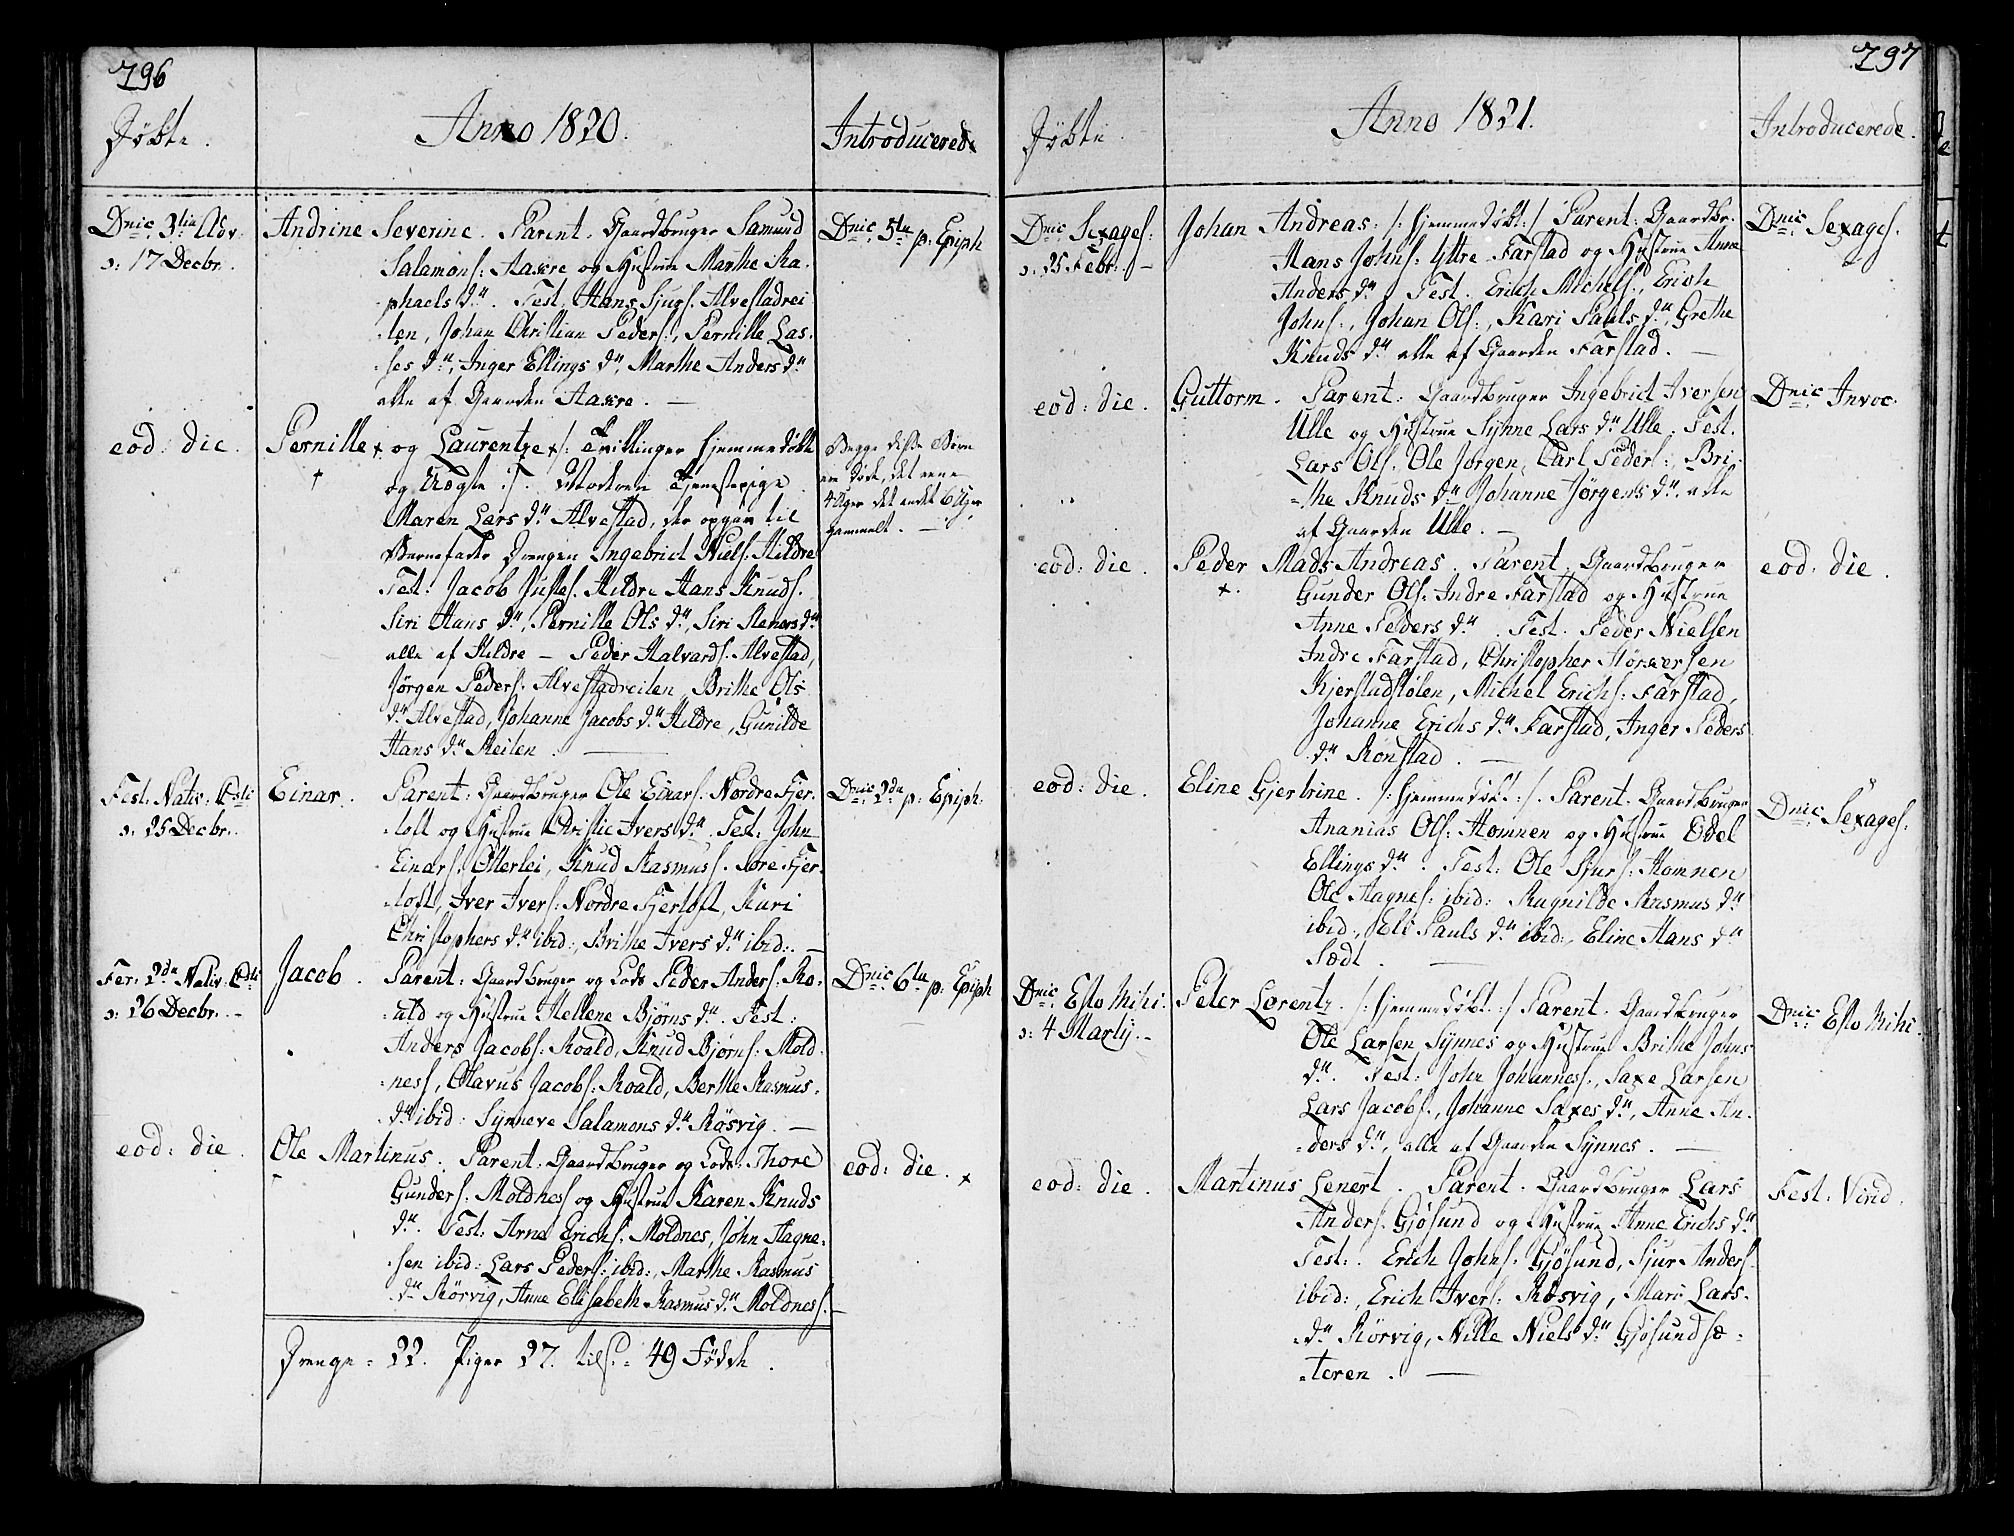 296
Døbte.
Anno 1820.
Introducerede
Dnic. 3tia Adv.
ɔ: 17 Decbr.
Andrine Severine. Parent. Gaardbruger Samund
Salamons: Aakre og Hustrue Marthe Ra-
phaels dtr. Test. Hans Sjurs. Alvestadrei
len, Johan Christian Peders:, Pernille Las-
ses dtr, Inger Ellings dtr, Marthe Anders dtr
alle af Gaarden Aakre. —
Dnic. 5ta p: Epiph
eod: die.
Pernille + og Laurentze + /: Tvillinger hjemmedøbte
og Uægte :/. Moderen Tjenestepige
Maren Lars dtr Alvestad, der opgav til
Barnefader Drengen Ingebrict Niels. Hildre
Test: Jacob Justes. Hildre Hans Knuds.
Siri Hans dtr, Pernille Ols dtr, Siri Steners dtr
alle af Hildre — Peder Halvards. Alvestad,
Jørgen Peders. Alvestadreilen, Brithe Ols
dtr Alvestad, Johanne Jacobs dtr Hildre, Gunilde
Hans dtr Reilen. —
Begge disse Børn
ere døde, det eene
4 Uger det andet 6 Uger
gammelt. —
Fest: Nativ: Csti
ɔ: 25 Decbr.
Einar.
Parent: Gaardbruger Ole Einars. Nordre Fjer-
toft og Hustrue Christie Ivers dtr. Test: John
Einars. Otterlei, Knud Rasmuss. Søre Fjer-
toft, Iver Ivers: Nordre Fjertoft, Kari
Christophers dtr ibid:, Brithe Ivers dtr ibid:. —
Dnic. 2da p: Epiph:
Fer: 2da Nativ: Csti
ɔ: 26 Decbr. —
Jacob.
Parent: Gaardbruger og Lods Peder Anders: Ro-
ald og Hustrue Hellene Bjørns dtr. Test:
Anders Jacobs: Roald, Knud Bjørns: Mold-
ness, Olavus Jacobs: Roald, Berthe Rasmus-
dtr ibid: Synneve Salamons dtr Røsvig. —
Dnic. 6ta p: Epiph
eod: die.
Ole Martinus. Parent: Gaardbruger og Lods: Thore
Gunders. Moldness og Hustrue Karen Knuds
dtr. Test: Arne Erichs. Moldnes, John Hagne-
sen ibid: Lars Peders: ibid:, Marthe Rasmus
dtr Rørvig, Anne Elisabeth Rasmus dtr Moldness. —
eod: die. +
Drenge = 22. Piger 27. tils. = 49 Fødde.
297
Døbte
Anno 1821.
Introducerede.
Dnic. Sexages:
ɔ: 25 Febr. —
Johan Andreas: /: hjemmedøbt :/ Parent: Gaardbr.
Hans Johns: Yttre Farstad og Hustrue Anne
Anders dtr. Test. Erich Michels., Erich
Johns:, Johan Ols:, Kari Pauls dtr, Grethe
Knuds dtr alle af Gaarden Farstad. —
Dnic. Sexages.
eod: die.
Guttorm. Parent: Gaardbruger Ingebrict Iversen
Ulle og Hustrue Synne Lars dtr Ulle. Test.
Lars Ols. Ole Jørgen, Carl Peders:, Bri-
the Knuds dtr Johanne Jørgens dtr. alle
af Gaarden Ulle. —
Dnic. Invoc:
eod: die.
Peder Mads Andreas. Parent. Gaardbruger
+.
Gunder Ols. Indre Farstad og Hustrue
Anne Peders dtr. Test. Peder Nielsen
Indre Farstad, Christopher
Kjerstadstølen, Michel Erichs: Farstad,
Johanne Erichs dtr Farstad, Inger Peders
dtr Rønstad. —
eod: die.
eod: die.
Eline Gjertrine. /: hjemmedøbt :/. Parent. Gaardbruger
Ananias Ols: Homnen og Hustrue Edel
Ellings dtr. Test: Ole Sjurs: Homnen
Ole Hagnes: ibid: Ragnilde Rasmus dtr
ibid, Eli Pauls dtr ibid:, Eline Hans dtr
Sædt. —
Dnic. Sexages:
Dnic. Esto Mihi:
ɔ: 4 Martij. —
Peter Lorentz. /: hjemmedøbt :/ Parent. Gaardbruger
Ole Larsen Synnes og Hustrue Brithe Johns
dtr. Test: John Johanness., Saxe Larsen
Lars Jacobs., Johanne Saxes dtr, Anne An-
ders dtr, alle af Gaarden Synnes. —
Dnic. Esto Mihi:
eod: die.
Martinus Lenert. Parent. Gaardbruger Lars
Anders. Gjøsund og Hustrue Anne Erichs dtr
Test: Erich Johns. Gjøsund, Sjur Anders.
ibid:, Erich Ivers: Røsvig, Mari Lars-
dtr Rørvig, Nille Niels dtr Gjøsundsæ-
teren. —
Fest: Vird.